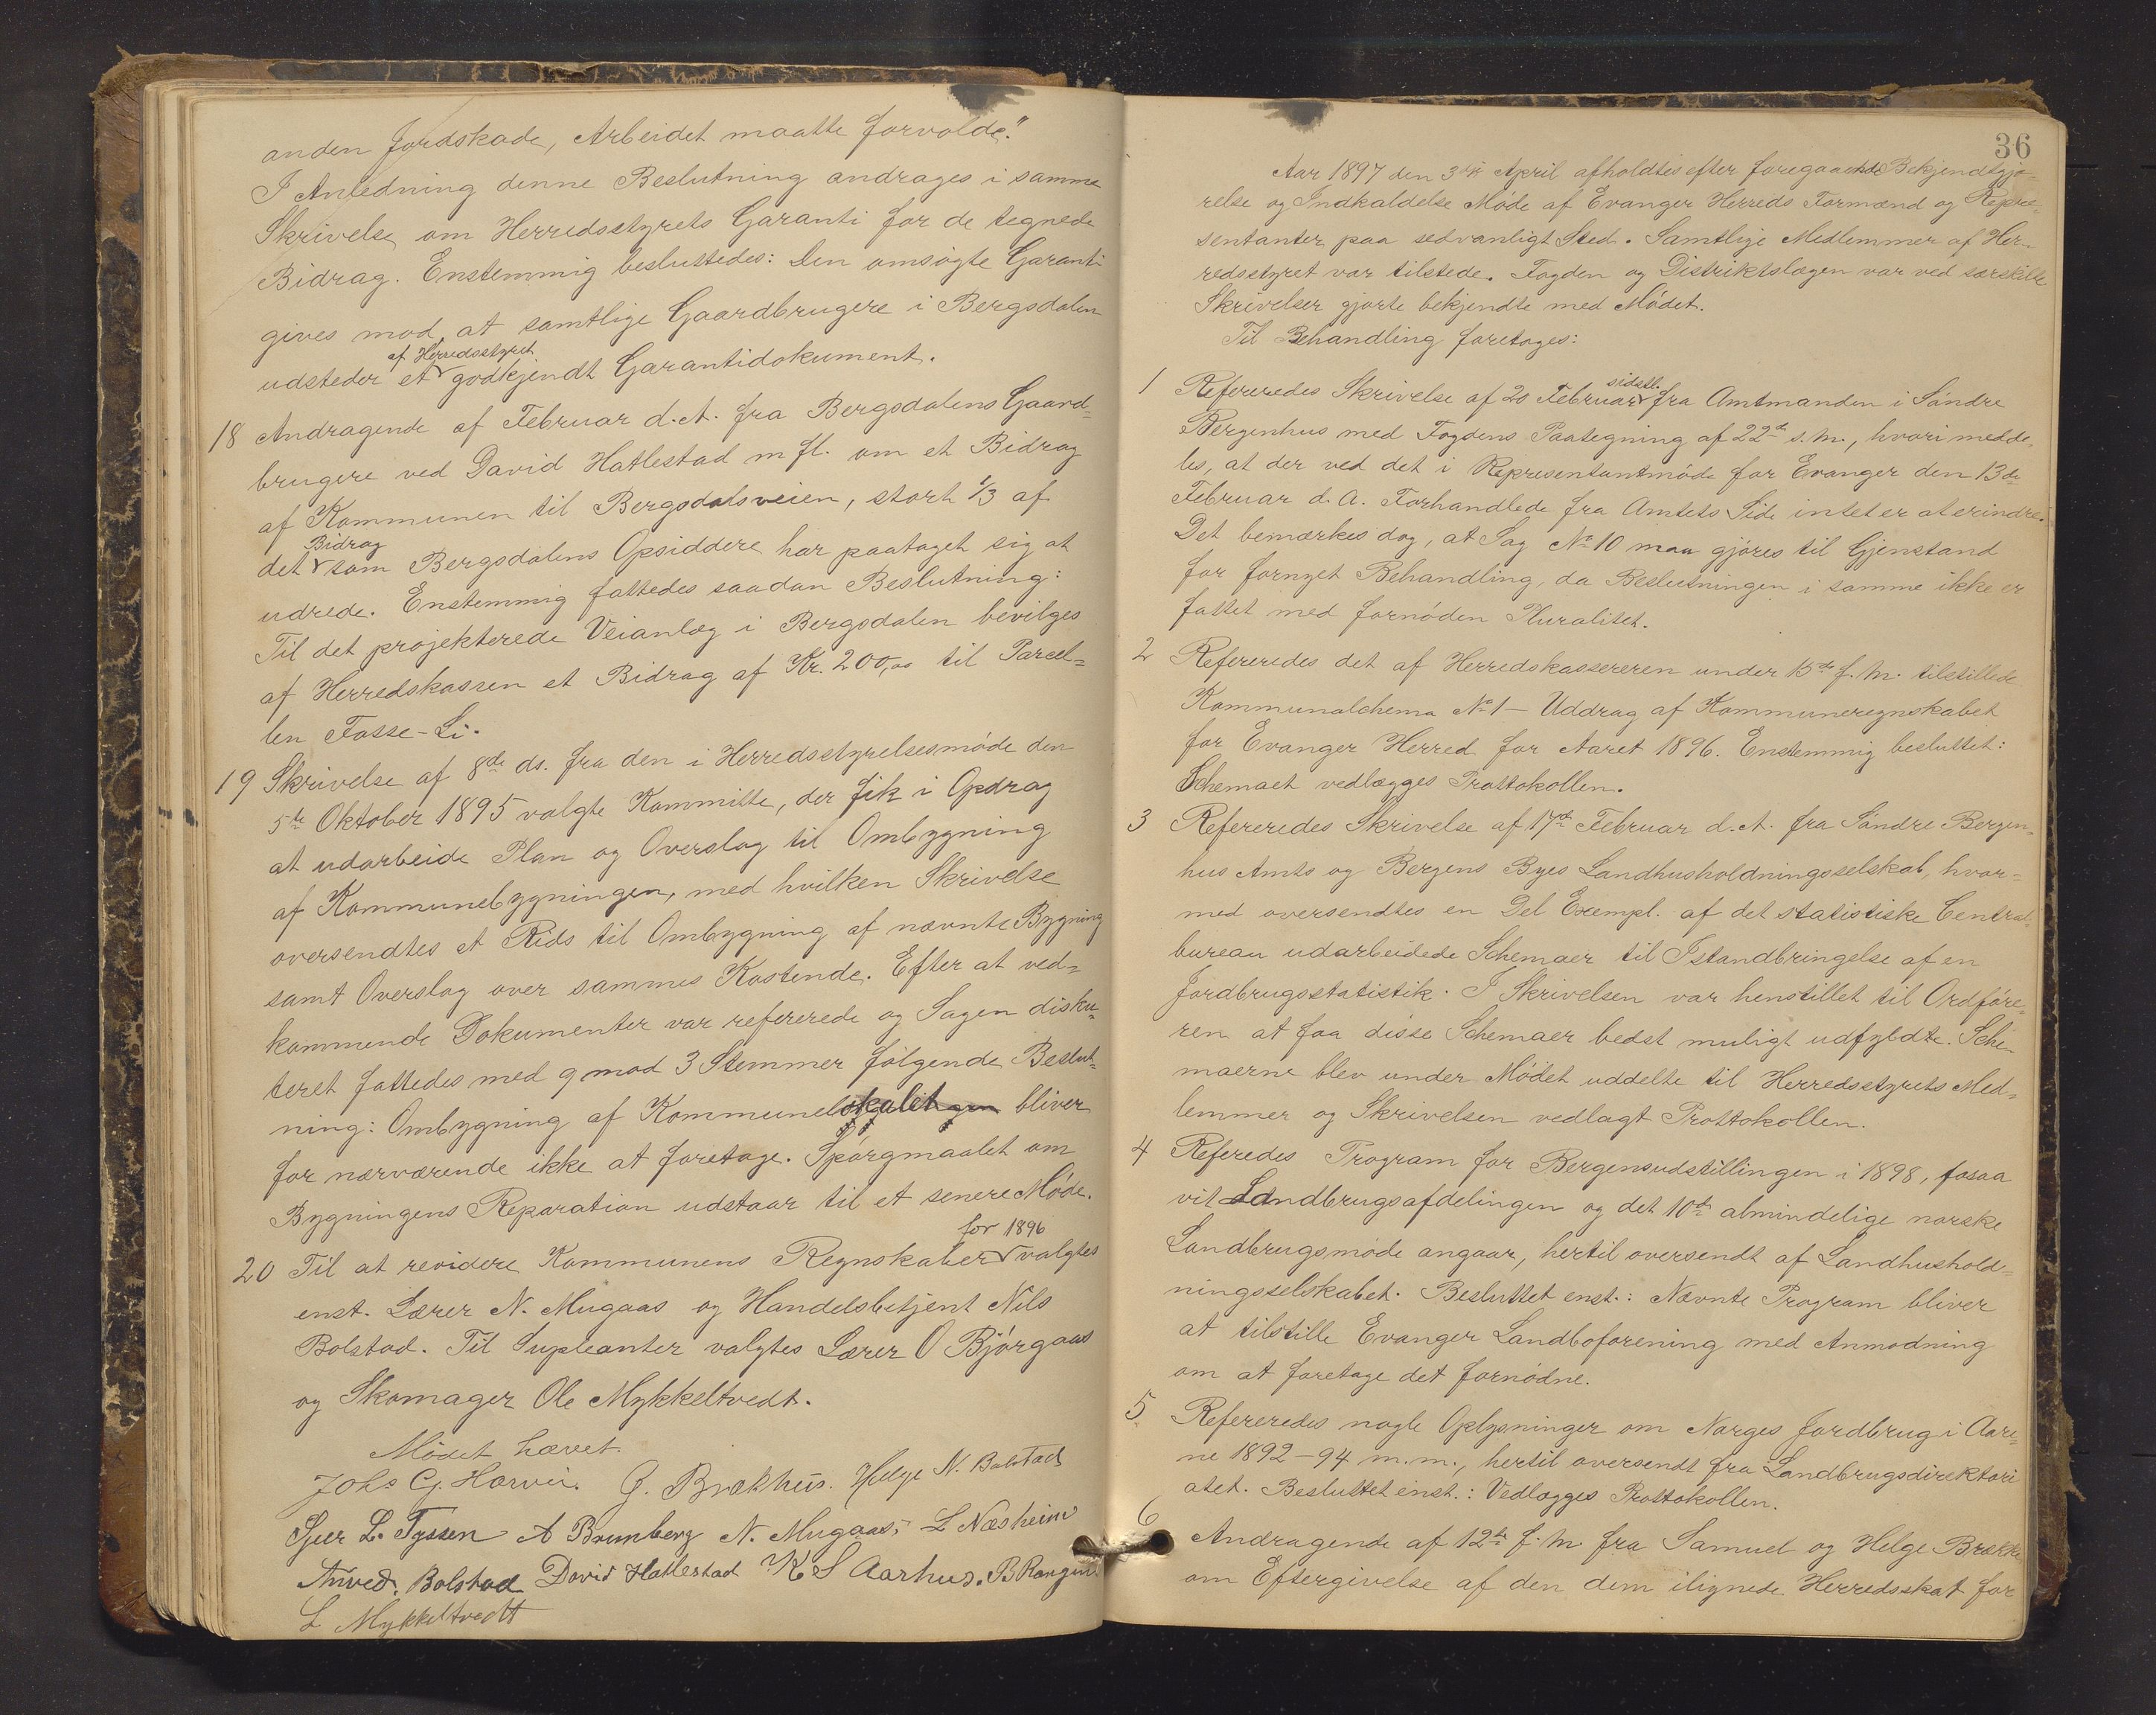 anden Jordskade, Arbeidet maatte forvolde."
I Anledning denne Beslutning andrages i samme
Skrivelse om Herredsstyrets Garanti for de tegnede
Bidrag. Enstemmig besluttedes: Den omsøgte Garanti
gives mod, at samtlige Gaardbrugere i Bergsdalen
af Herredsstyret
udsteder et godkjendt Garantidokument.
18 Andragende af Februar d. A. fra Bergsdalens Gaard=
brugere ved David Hatlestad m fl. om et Bidrag
af Kommunen til Bergsdalsveien, stort 1/3 af
Bidrag
det som Bergsdalens Opsiddere har paataget sig at
udrede. Enstemmig fattedes saadan Beslutning:
Til det projekterede Veianlæg i Bergsdalen bevilges
af Herredskassen et Bidrag af Kr. 200,00 til Parcel=
len Fosse-Li.
19 Skrivelse af 8de ds. fra den i Herredsstyrelsesmøde den
5te Oktober 1895 valgte Kommitte, der fik i Opdrag
at udarbeide Plan og Overslag til Ombygning
af Kommunebygningen, med hvilken Skrivelse
oversendtes et Rids til Ombygning af nævnte Bygning
samt Overslag over sammes Kostende. Efter at ved=
kommende Dokumenter var refererede og Sagen disku=
teret fattedes med 9 mod 3 Stemmer følgende Beslut=
ning: Ombygning af Kommunelokalet bliver
for nærværende ikke at foretage. Spørgmaalet om
Bygningens Reparation udstaar til et senere Møde.
for 1896
20 Til at revidere Kommunens Regnskaber valgtes
enst. Lærer N. Mugaas og Handelsbetjent Nils
Bolstad. Til Supleanter valgtes Lærer O Bjørgaas
og Skomager Ole Mykkeltvedt.
Mødet hævet.
Johs G. Horvei. G. Brækhus. Helge N. Bolstad
Sjur L. Tyssen A Brunberg N. Mugaas, L Næsheim
Anved. Bolstad David Hatlestad K S Aarhus. B Rongen.
L Mykkeltvedt
36
Aar 1897 den 3die April afholdtes efter foregaaende Bekjendtgjø-
relse og Indkaldelse Møde af Evanger Herreds Formænd og Repre-
sentanter paa sedvanligt Sted. Samtlige Medlemmer af Her-
redsstyret var tilstede. Fogden og Distriktslægen var ved særskilte
Skrivelser gjorte bekjendte med Mødet.
Til Behandling foretoges:
sidstl.
1 Refereredes Skrivelse af 20 Februar fra Amtmanden i Søndre
Bergenhus med Fogdens Paategning af 22de s. M., hvori medde-
les, at der ved det i Representantmøde for Evanger den 13de
Februar d. A. Forhandlede fra Amtets Side intet er at erindre.
Det bemærkes dog, at Sag No 10 maa gjøres til Gjenstand
for fornyet Behandling, da Beslutningen i samme ikke er
fattet med fornøden Pluralitet.
2 Refereredes det af Herredskassereren under 15de f. M. tilstillede
Kommunalchema No 1 - Uddrag af Kommuneregnskabet
for Evanger Herred for Aaret 1896. Enstemmig besluttet:
Schemaet vedlægges Prottokollen.
3 Refereredes Skrivelse af 17de Februar d. A. fra Søndre Bergen-
hus Amts og Bergens Byes Landhusholdningsselskab, hvor=
med oversendtes en Del Exempl. af det statistiske Central-
bureau udarbeidede Schemaer til Istandbringelse af en
Jordbrugsstatistik. I Skrivelsen var henstillet til Ordføre-
ren at faa disse Schemaer bedst muligt udfyldte. Sche-
maerne blev under Mødet uddelte til Herredsstyrets Med-
lemmer og Skrivelsen vedlagt Prottokollen.
4 Referedes Program for Bergensudstillingen i 1898, forsaa
vit Landbrugsafdelingen og det 10de almindelige norske
Landbrugsmøde angaar, hertil oversendt af Landhushold=
ningsselskabet. Besluttet enst.: Nævnte Program bliver
at tilstille Evanger Landboforening med Anmodning
om at foretage det fornødne.
5. Refereredes nogle Oplysninger om Norges Jordbrug i Aare-
ne 1892-94 m. m., hertil oversendt fra Landbrugsdirektori
atet. Besluttet enst.: Vedlægges Prottokollen.
6 Andragende af 12te f. M. fra Samuel og Helge Brække
om Eftergivelse af den dem ilignede Herredsskat for